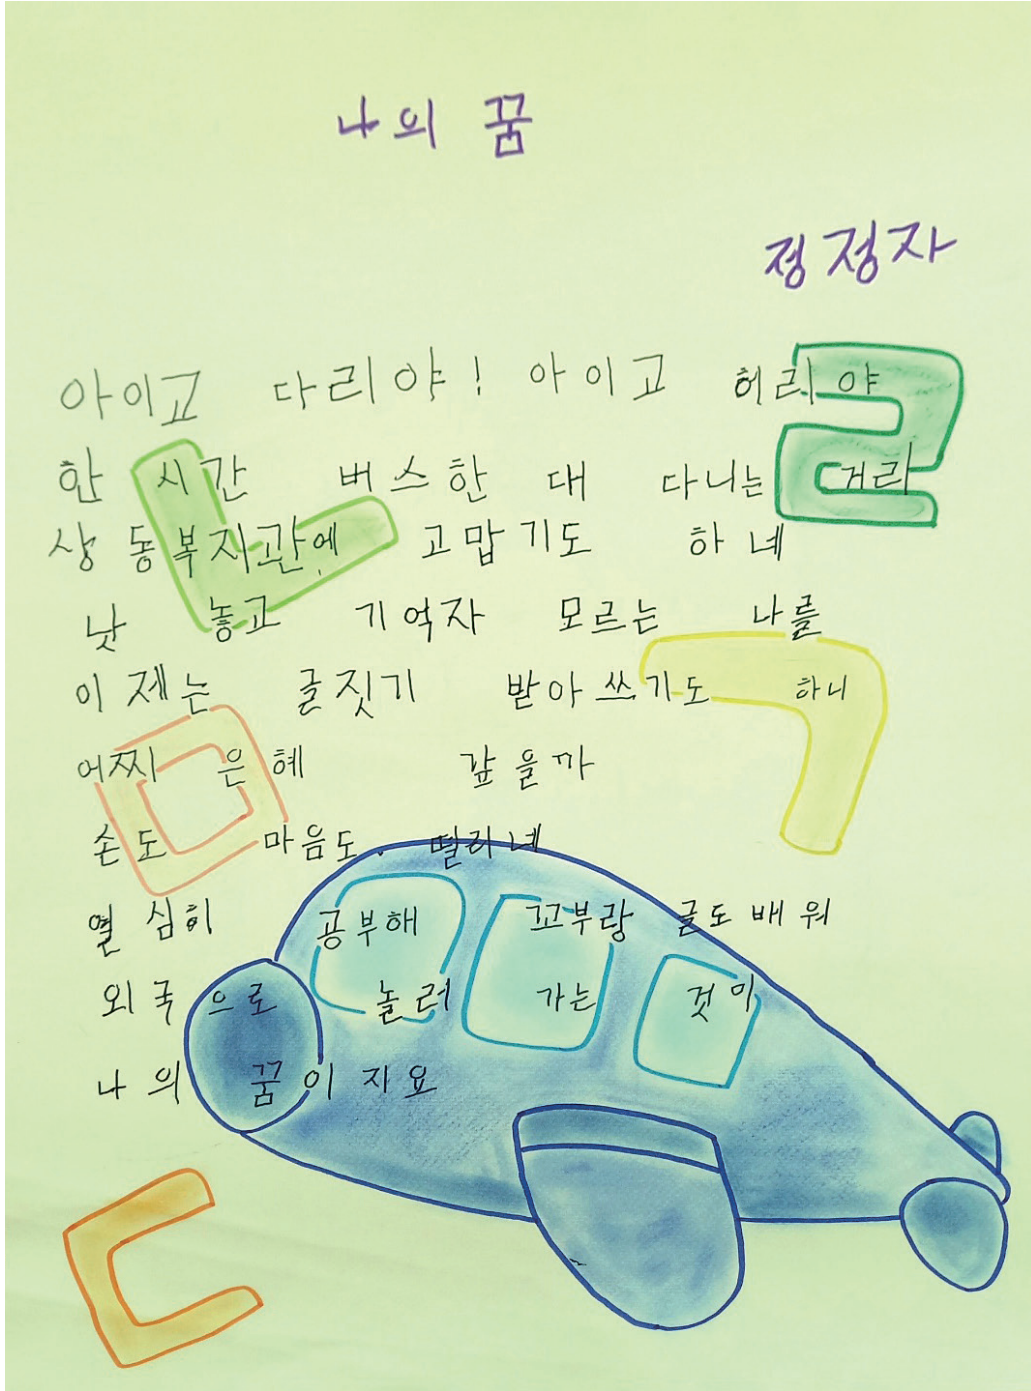 나의 꿈
정정자
아이고 다리야! 아이고 허리야
한 시간 버스한 대 다니는 거리
상동복지관에 고맙기도 하네
낫 놓고 기역자 모르는 나를
이제는 글짓기 받아쓰기도 하니
어찌 은혜 갚을까
손도 마음도. 떨리네
열심히 공부해 꼬부랑 글도 배워
외국으로 놀러 가는 것이
나의 꿈이지요
ㄹ
ㄴ
ㄱ
ㅁ
ㄷ